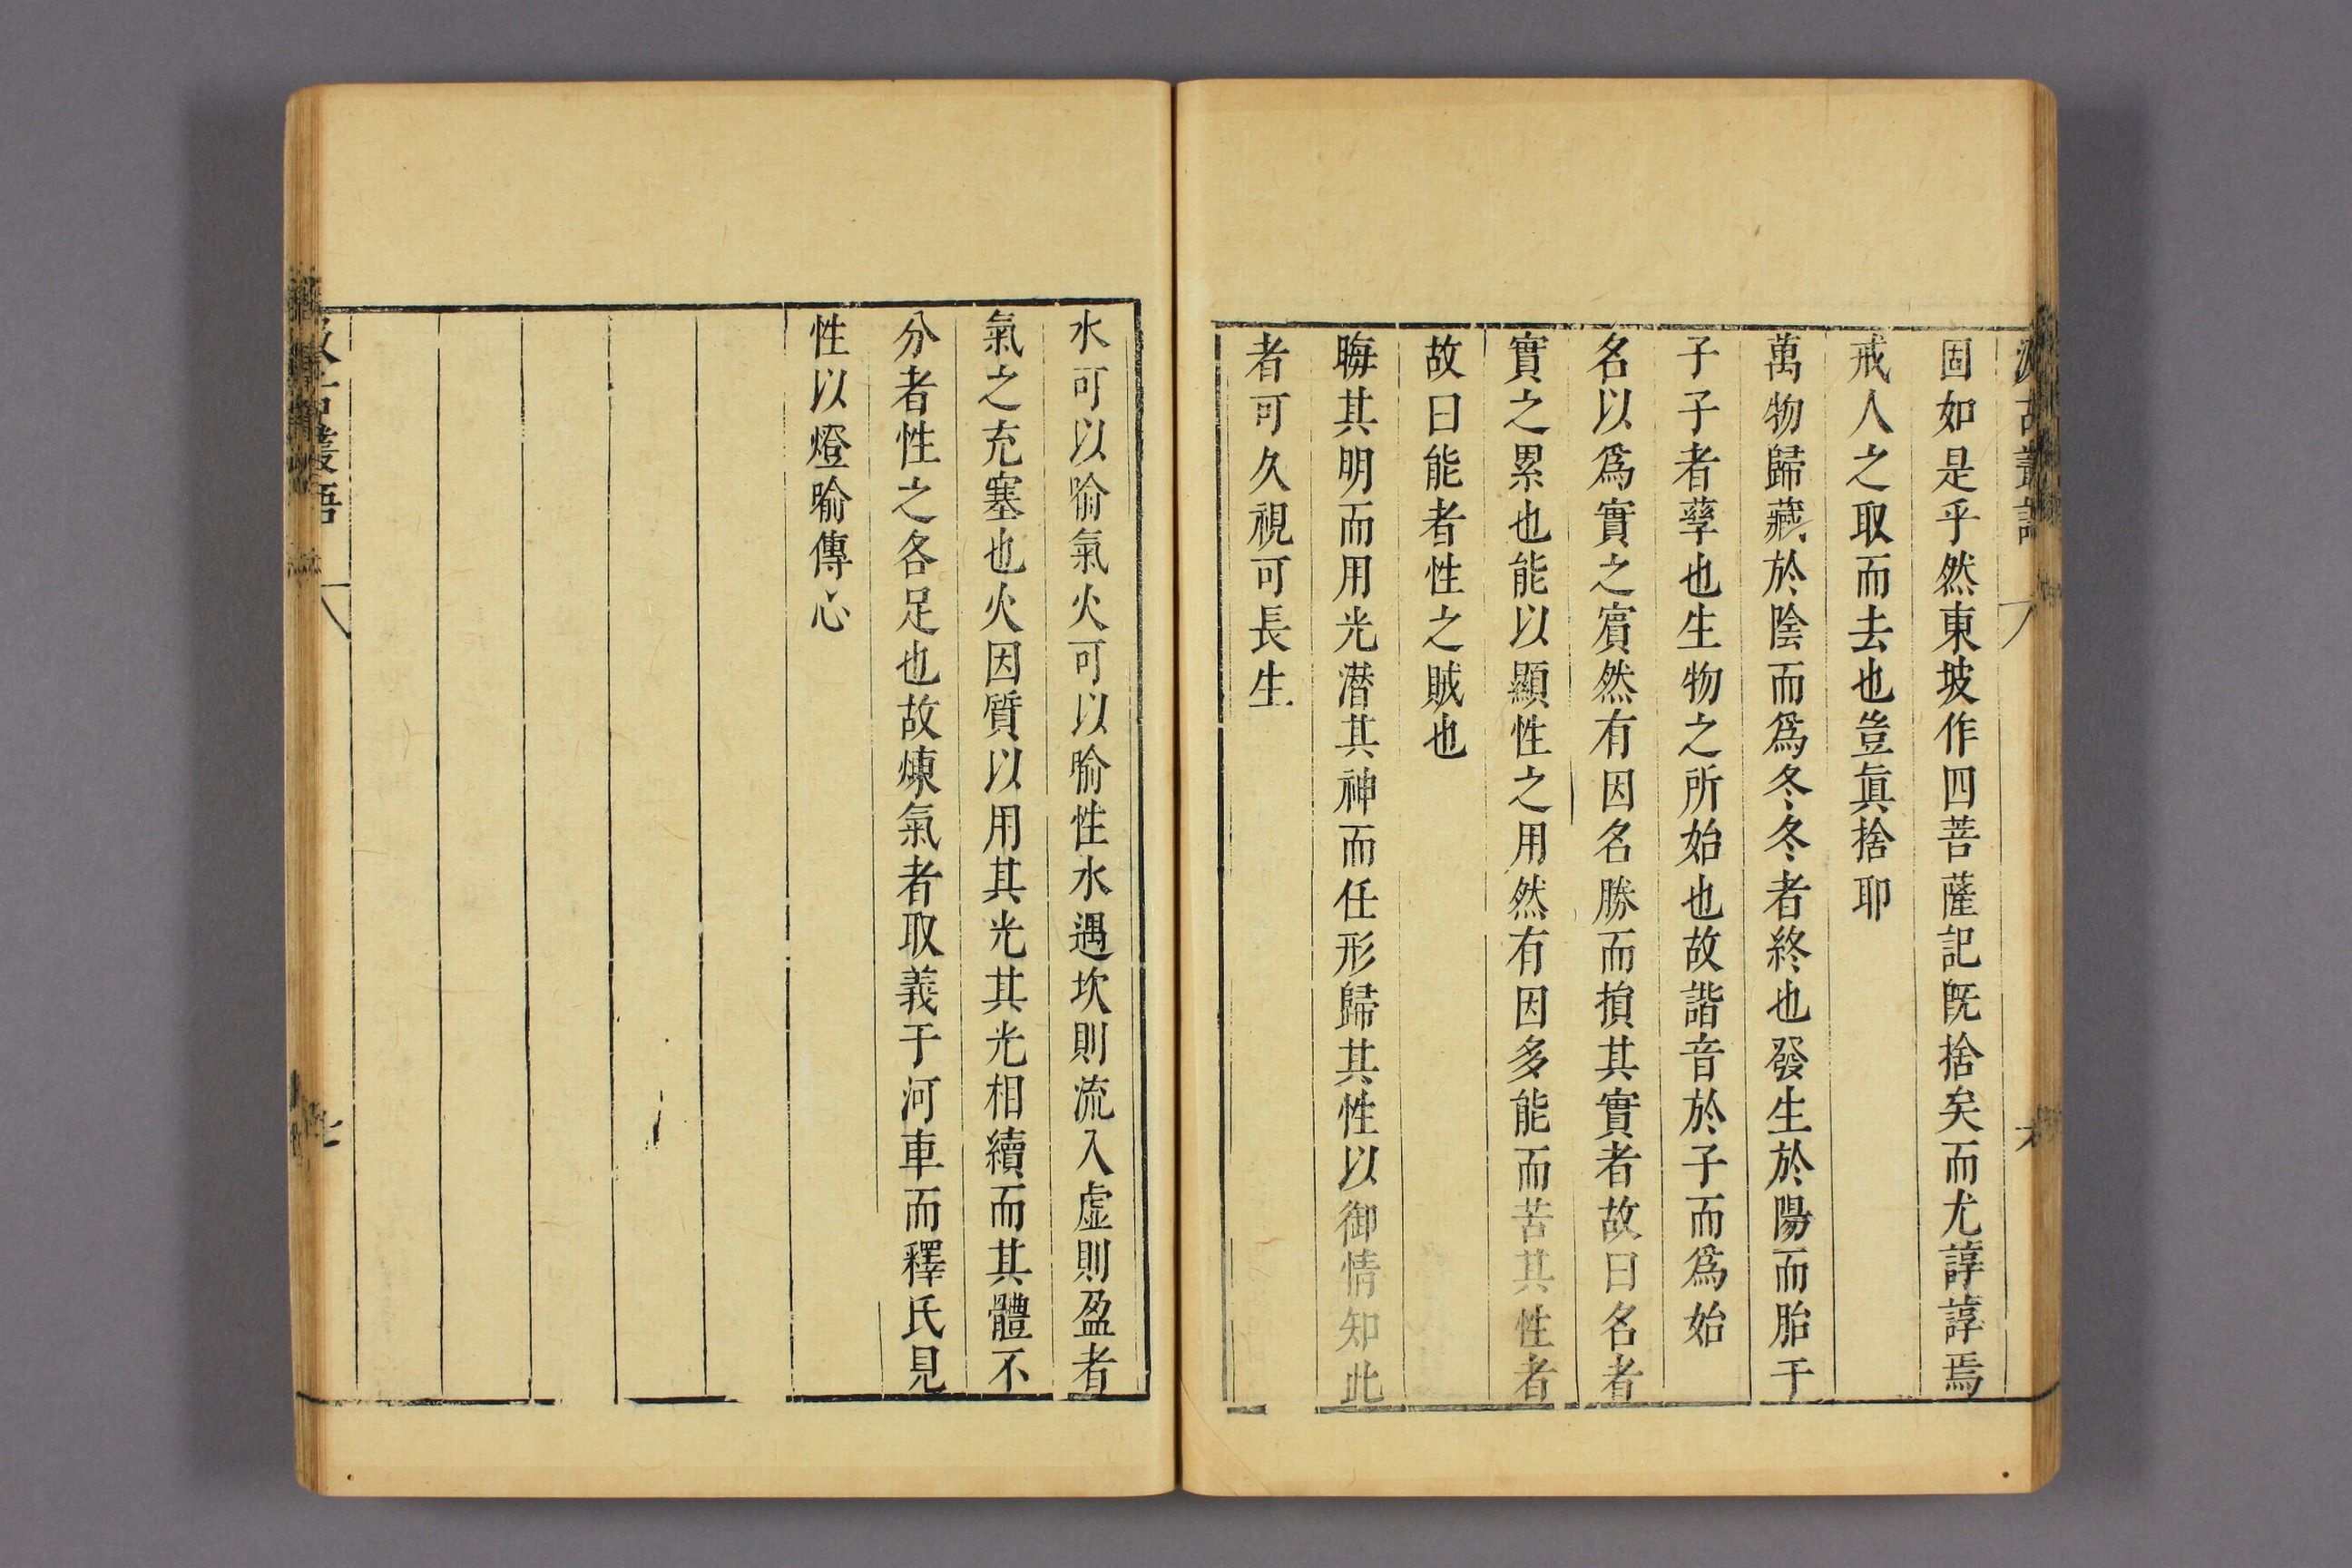 固如是乎然東坡作四菩薩記旣捨矣而尤諄諄焉
戒人之取而去也豈眞捨耶
萬物歸藏於陰而爲冬冬者終也發生於陽而胎于
子子者孳也生物之所始也故諧音於子而爲始
名以爲實之賔然有因名勝而損其實者故曰名者
實之累也能以顯性之用然有因多能而苦其性者
故曰能者性之賊也
晦其明而用光潛其神而任形歸其性以御情知此
者可久視可長生
水可以喻氣火可以喻性水遇坎則流入虛則盈者
氣之充塞也火因質以用其光其光相續而其體不
分者性之各足也故煉氣者取義于河車而釋氏見
性以燈喻傳心